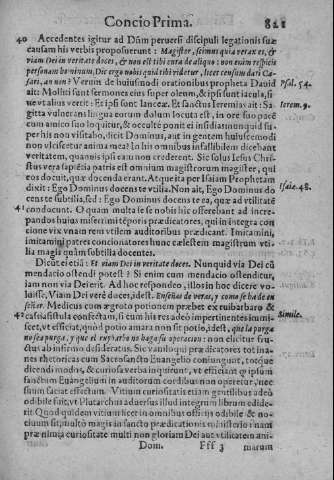 Concio Prima. 821
40 Accedentes igitur ad Dñm peruersi discipuli legationis suæ
causam his verbis proposuerunt: Magister, scimus quia verax es, &
viam Dei in veritate doces, & non est tibi cura de aliquo: non enim respicis
personam hominum, Dic ergo nobis quid tibi videtur, licet censum dari Cæ-
sari, an non? Verum de huiusmodi orationibus propheta Dauid
ait: Molliti sunt sermones eius super oleum, & ipsi sunt iacula, si-
ue vt alius vertit: Et ipsi sunt lanceæ. Et sanctus Ieremias ait: Sa-
gitta vulnerans lingua eorum dolum locuta est, in ore suo pacē
cum amico suo loquitur, & occultè ponit ei insidias nunquid su-
per his non visitabo, dicit Dominus, aut in gentem huiuscemodi
non vlciscetur anima mea? In his omnibus infallibilem dicebant
veritatem, quamuis ipsi eam non crederent. Sic solus Iesus Chri-
stus vera sapiētia patris est omnium magistrorum magister, qui
eos docuit, quæ docenda erant. Atque ita per Isaiam Prophetam
dixit: Ego Dominus docens te vtilia. Non ait, Ego Dominus do
cens te subtilia, sed: Ego Dominus docens te ea, quæ ad vtilitatē
41 conducunt. O quam multa iste nobis hic offerebant ad incre-
pandos huius miserrimi tēporis prædicatores, qui in integra con
cione vix vnam rem vtilem auditoribus prædicant. Imitamini,
imitamini patres concionatores hunc cælestem magistrum vti-
lia magis quàm subtilia docentem.
Dicūt ei etiā: Et viam Dei in veritate doces. Nunquid via Dei cū
mendacio ostendi potest? Si enim cum mendacio ostenditur,
iam non via Dei erit. Ad hoc respondeo, illos in hoc dicere vo-
luisse, Viam Dei verè doces, idest, Enseñas de veras, y como se ha de en
señar. Medicus cum ægroto potionem præbet ex ruibarbaro &
42 cassia fistula confectam, si cum his res adeò impertinentes immi
scet, vt efficiat, quòd potio amara non sit potio, idest, que la purga
no sea purga, y que el ruybarbo no haga su operacion: non elicitur fru-
ctus ab infirmo desideratus. Sic vani loqui prædicatores tot ina-
nes rhetoricas cum Sacrosancto Euangelio coniungunt, totque
dicendi modos, & curiosa verba inquirunt, vt efficiant q ipsum
sanctum Euangelium in auditorum cordibus non operetur, nec
suum faciat effectum. Vitium curiositatis etiam gentilibus adeò
odibile fuit, vt Plutarchus aduersus illud integrum librum edide-
rit. Quòd quidem vitium licet in omnibus officiis odibile & no-
ciuum sit, multò magis in sancto prædicationis ministerio: nam
præ nimia curiositate multi non gloriam Dei aut vtilitatem ani-
Dom. Fff 3 marum
Psal. 54.
Ierem. 9.
Isaiæ. 48.
Simile.